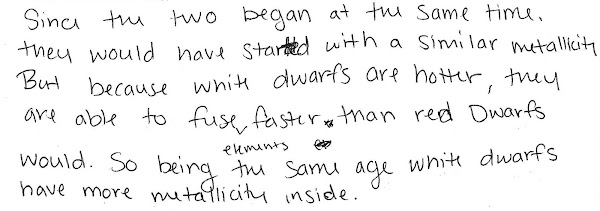 Since the two began at the same time.
they would have started with a similar metallicity
But because white dwarfs are hotter, they
are able to fuse elements faster than red Dwarfs
would. So being the same age white dwarfs
have more metallicity inside.